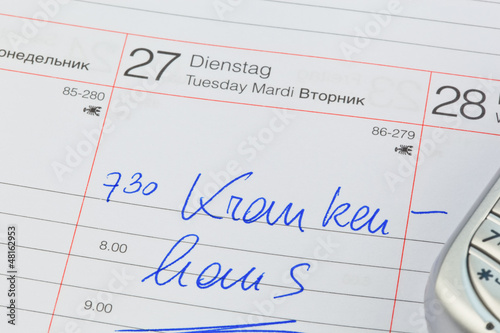 онедельник
27 Dienstag
Tuesday Mardi Вторник
28
85-280
86-279
7 30 Kranken-
haus
8.00
9.00
48162953